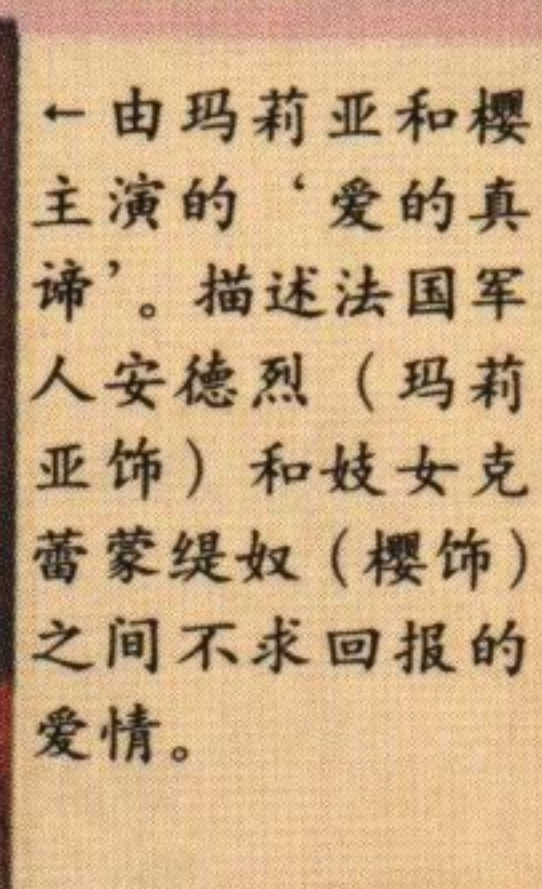 ←由玛莉亚和樱
主演的‘爱的真
谛’。描述法国军
人安德烈（玛莉
亚饰）和妓女克
蕾蒙缇奴（樱饰）
之间不求回报的
爱情。